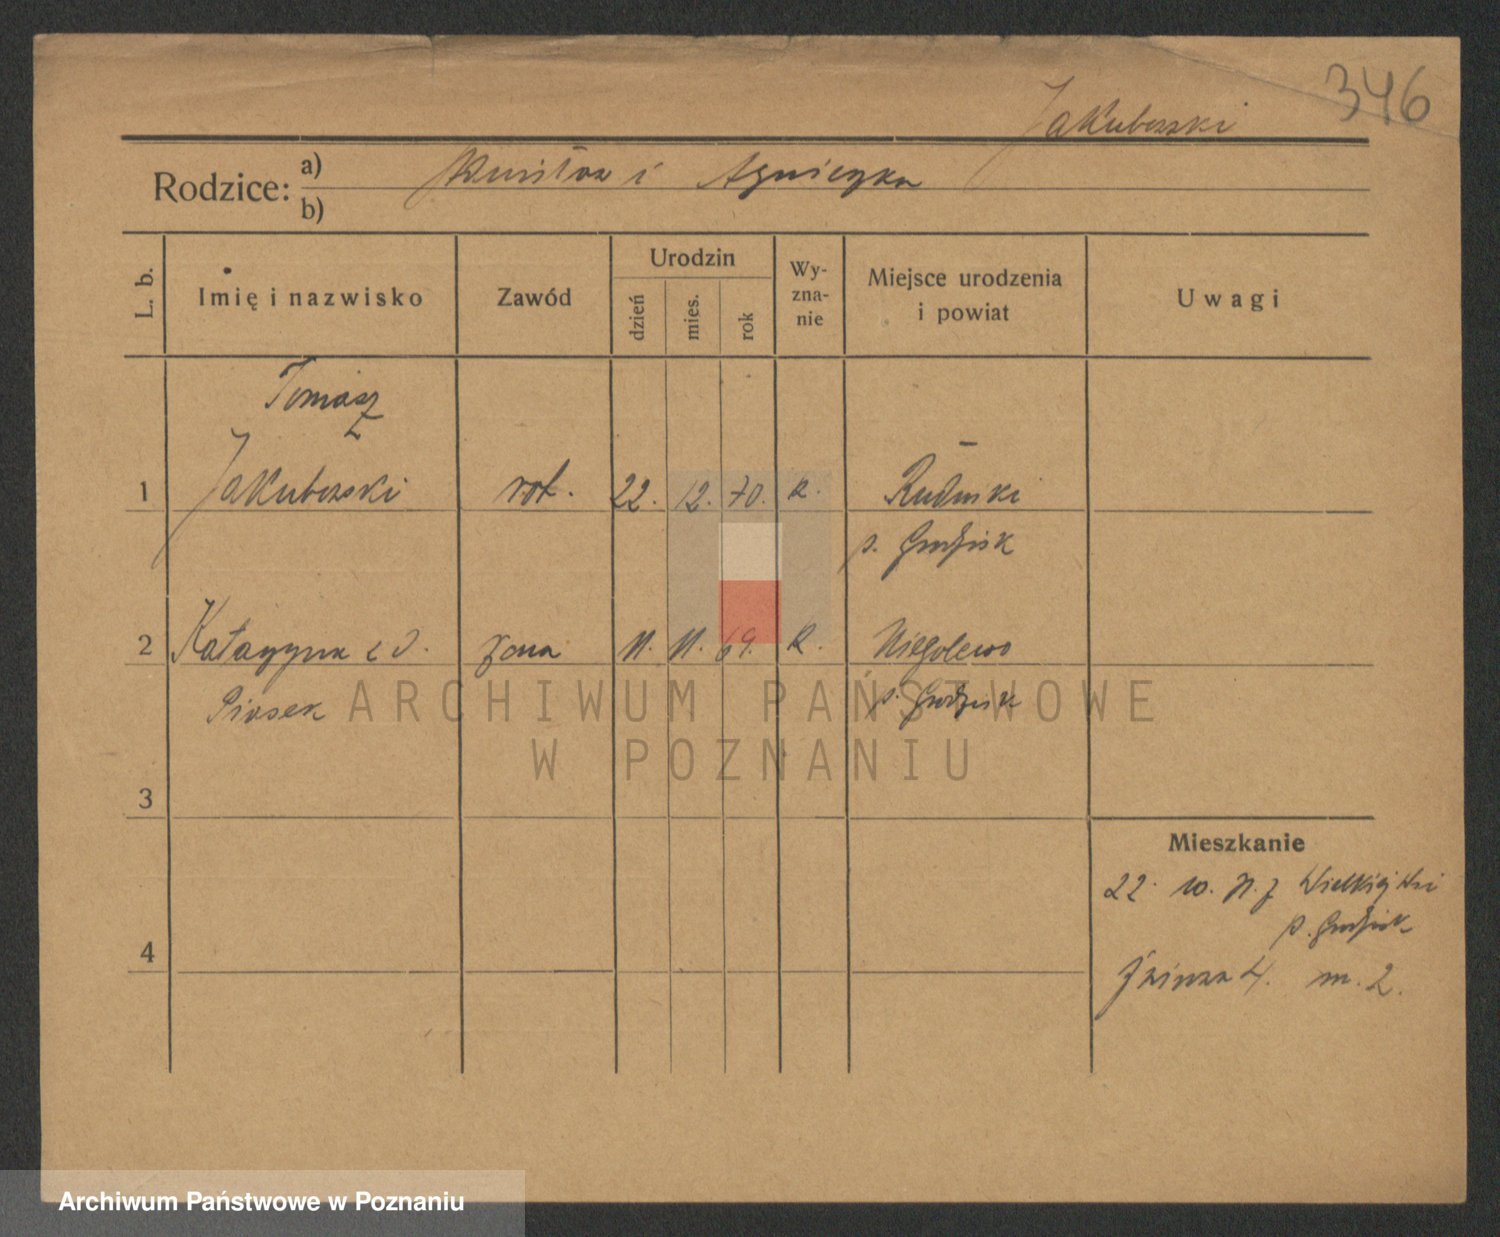 346
Jakuboski
Rodzice: a) i Agnieszka
b)
L. b.
Imię i nazwisko
Zawód
Urodzin
dzień
mies.
rok
Wy-
zna-
nie
Miejsce urodzenia
i powiat
Uwagi
Tomasz
1 Jakuboski rob. 22. 12. 70. R. Rudniki
p. Grodzisk
2 Katarzyna z d. żona 11. 11. 69. R. Niegolewo
Piosek p. Grodzisk
ARCHIWUM PAŃSTWOWE
W POZNANIU
3
Mieszkanie
22. 10. Wielkiej Wsi
p. Grodzisk
4
4. m. 2.
Archiwum Państwowe w Poznaniu